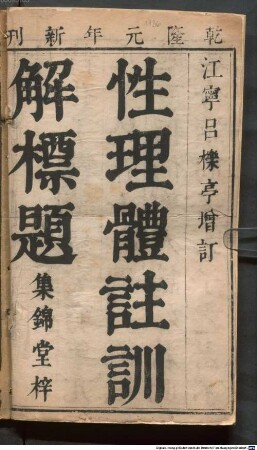 乾隆元年新刊
江寧呂櫟亭增訂
性理體註訓
解標題
集錦堂梓